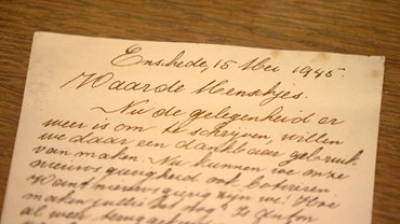 Enschede, 15 Mei 1945.
Waarde Menschjes.
Nu de gelegenheid er
weer is om te schrijven, willen
we daar een dankbaar gebruik
van maken. Nu kunnen we onze
nieuwsgierigheid ook botvieren.
Want nieuwsgierig zijn we! Hoe
maken jullie het nog?
al weer